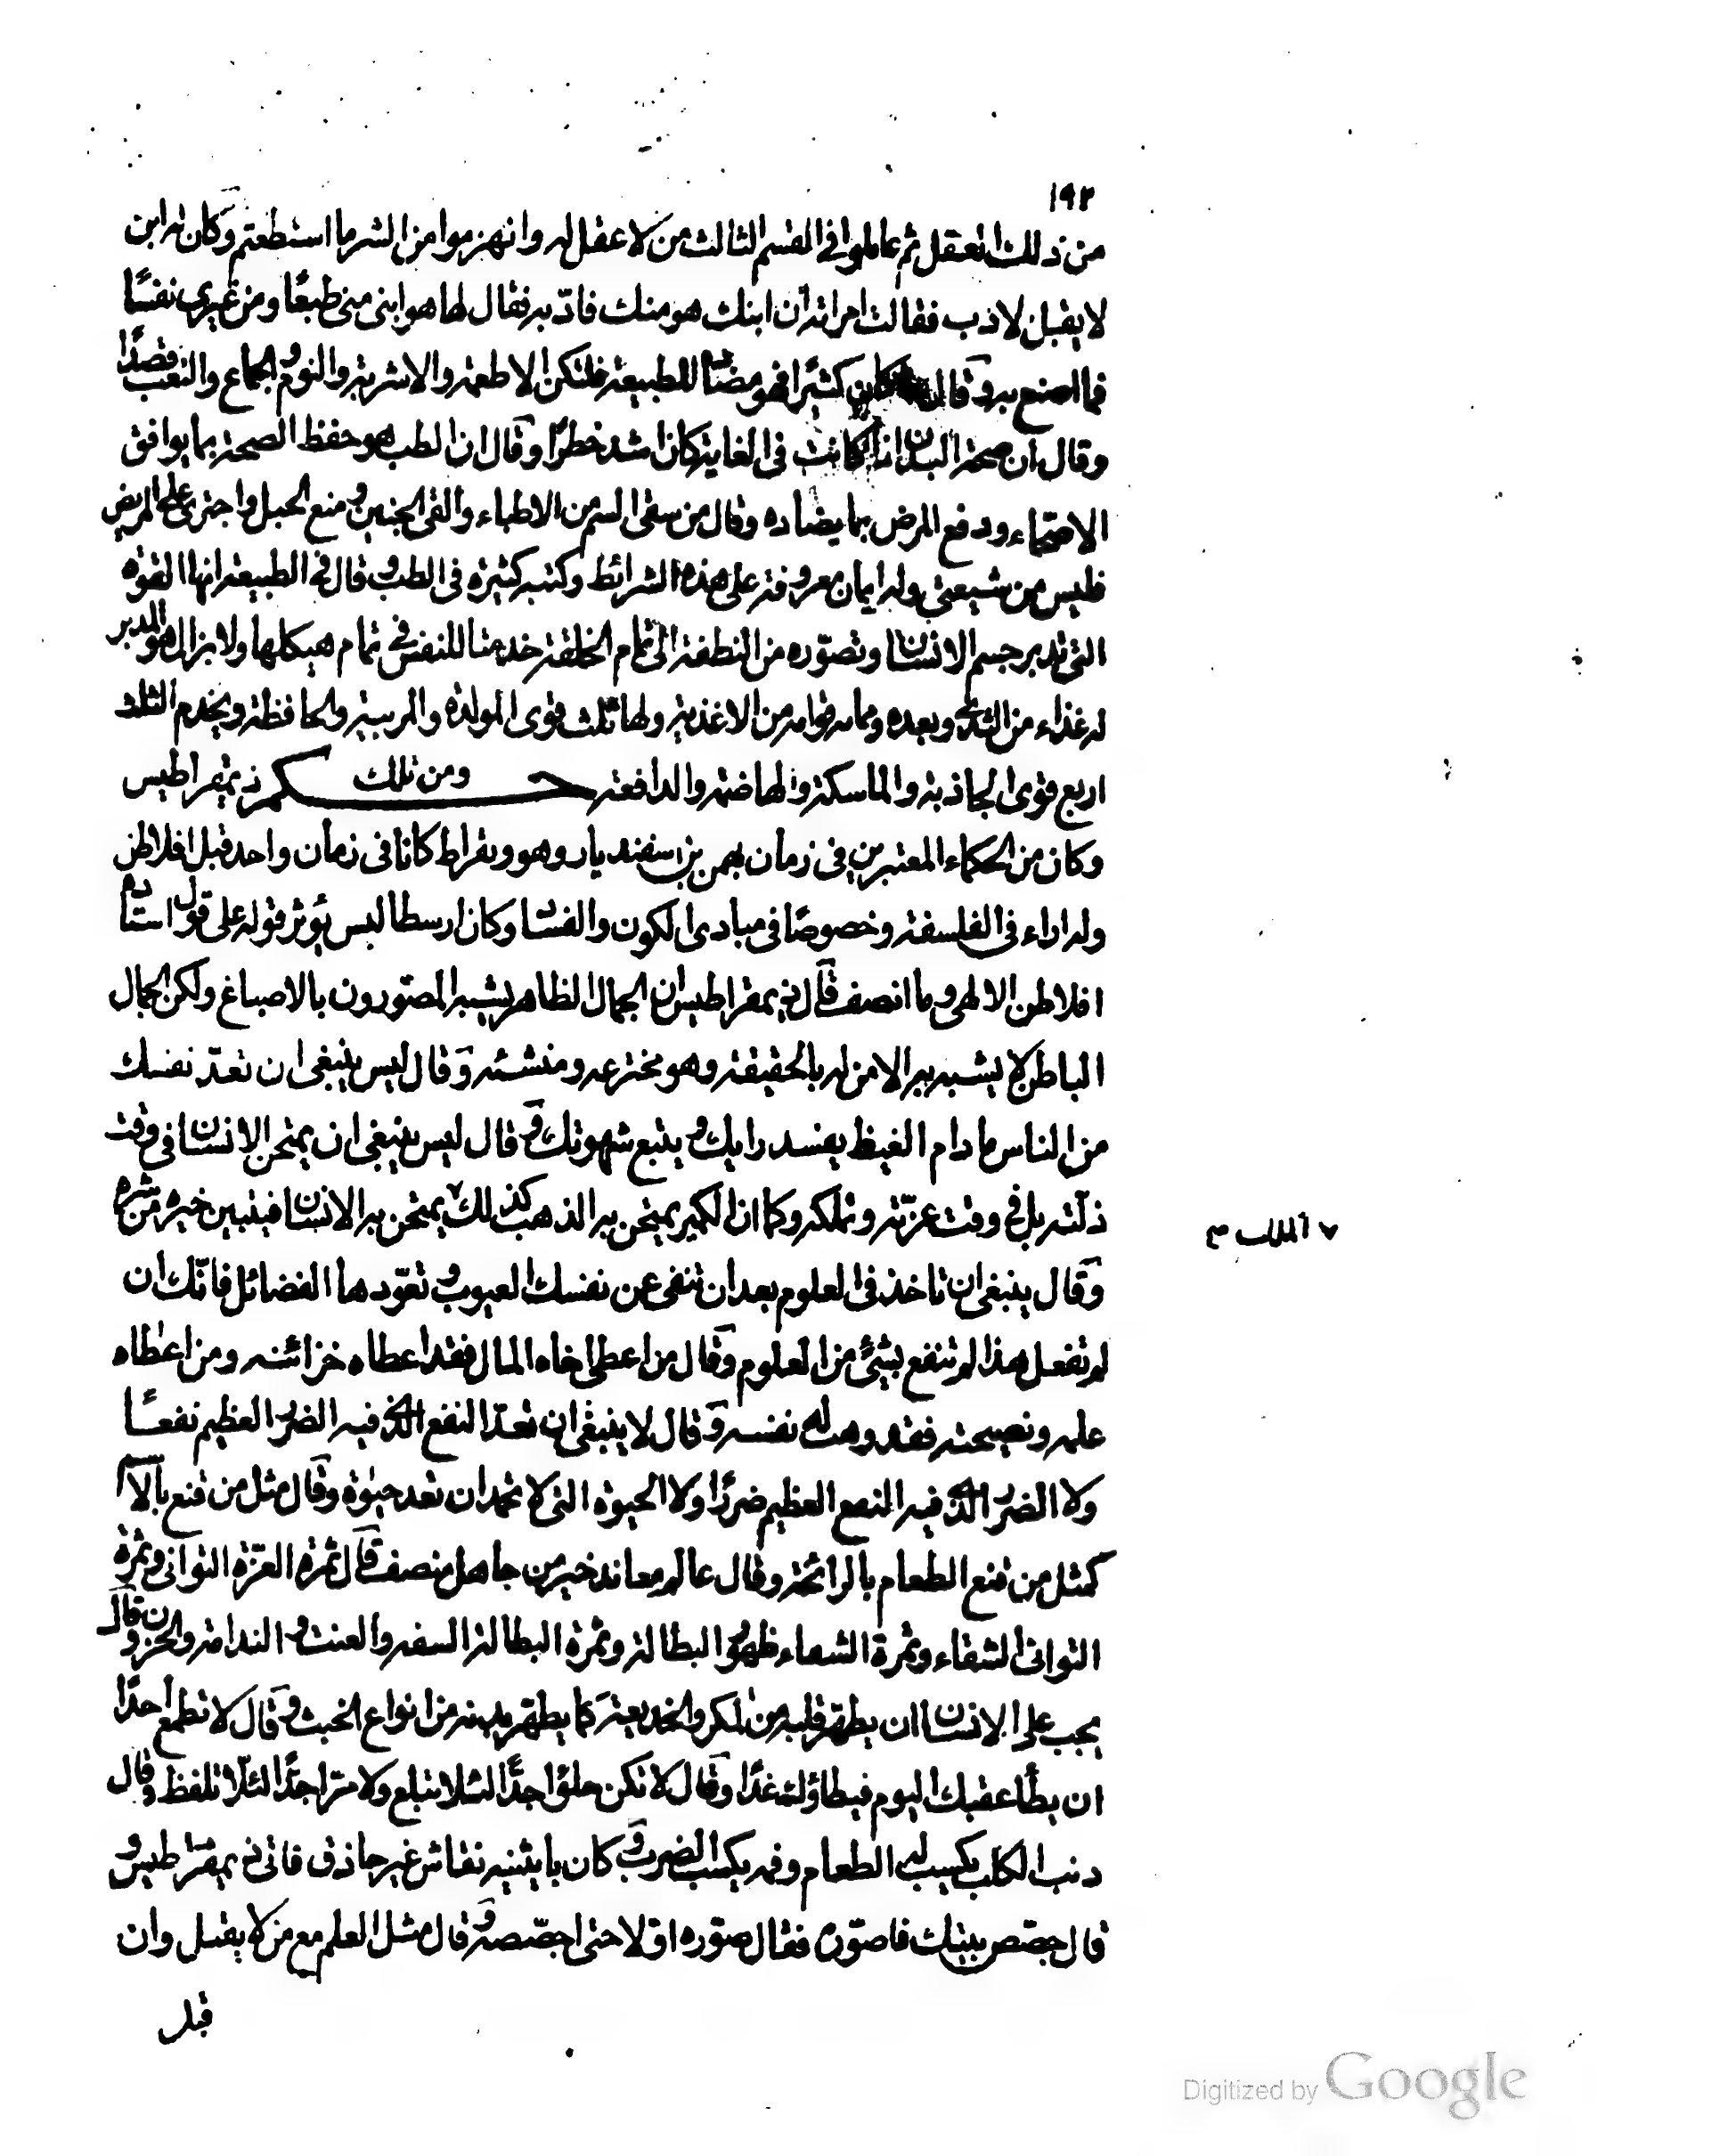 ١٩٢
من ذلك العقل ثم عاملوا في القسم الثالث من لا عقل له وانهزموا من الشر ما استطعتم وكان له ابن
لا يقبل الادب فقالت امراته ان ابنك هو منك فادّبه فقال لها هو ابني مني طبعًا ومن غيري نفسًا
فما اصنع به وقال ما كان كثيرًا فهو مضاد للطبيعة فلتكن الاطعمة والاشربة والنوم والجماع والتعب قصدًا
وقال ان صحة البدن اذا كانت في الغاية كان اشد خطرًا وقال ان الطب هو حفظ الصحة بما يوافق
الاصحاء ودفع المرض بما يضاده وقال من سقى السم من الاطباء والقى الجنين ومنع الحبل واجترى على المريض
فليس من شيعتي وله ايمان معروفة على هذه الشرائط وكتبه كثيرة في الطب وقال في الطبيعة انها القوة
التي تدبر جسم الانسان وتصوّره من النطفة الى تمام الخلقة خدمتا للنفس في تمام هيكلها ولا يزال هو المدبر
له غذاء من الثدي وبعده ومما به قوامه من الاغذية ولها ثلث قوى المولدة والمربية والحافظة ويخدم الثلث
اربع قوى الجاذبة والماسكة والهاضمة والدافعة ومن تلك حكم ذيمقراطيس
وكان من الحكماء المعتبرين في زمان بهمن بن اسفنديار وهو وبقراط كانا في زمان واحد قبل افلاطن
وله اراء في الفلسفة وخصوصًا في مبادى الكون والفساد وكان ارسطاليس يؤثر قوله على قول استاده
افلاطن الالهي وما انصف قال ذيمقراطيس ان الجمال الظاهر يشبه المصورون بالاصباغ ولكن الجمال
الباطن لا يشبه به الا من له بالحقيقة وهو مخترعه ومنشئه وقال ليس ينبغي ان تعدّ نفسك
من الناس ما دام الغيظ يفسد رايك ويتبع شهوتك وقال ليس ينبغي ان يمتحن الانسان في وقت
ذلته بل في وقت عزّته وتملكه وكما ان الكير يمتحن به الذهب كذلك ٧ يمتحن به الانسان فيتبين خيره من شره
٧ الملك م
وقال ينبغي ان تاخذ في العلوم بعد ان تنفي عن نفسك العيوب وتعوّدها الفضائل فانّك ان
لم تفعل هذا لم تنتفع بشئ من العلوم وقال من اعطى اخاه المال فقد اعطاه خزائنه ومن اعطاه
علمه ونصيحته فقد وهب له نفسه وقال لا ينبغي ان تعدّ النفع الذي فيه الضرر العظيم نفعًا
ولا الضرر الذي فيه النفع العظيم ضررًا ولا الحيوة التي لا تحمد ان تعد حيوة وقال مثل من قنع بالاسم
كمثل من قنع الطعام بالرائحة وقال عالم معاند خير من جاهل منصف قال ثمرة العزّة التواني وثمرة
التواني الشقاء وثمرة الشقاء ظهور البطالة وثمرة البطالة السفه والعنت والندامة والحزن وقال
يجب على الانسان ان يطهر قلبه من المكر والخديعة كما يطهر بدنه من انواع الخبث وقال لا تطمع احدًا
ان يطأ عقبك اليوم فيطاؤك غدًا وقال لا تكن حلوًا جدًّا لئلا تبلع ولا مرّا جدًّا لئلّا تلفظ وقال
ذنب الكلب يكسب له الطعام وفمه يكسب الضرب وكان باثينية نقاش غير حاذق فاتى ذيمقراطيس و
قال جصّص بيتك فاصوّره فقال صوّره اوّلا حتى اجصّصه وقال مثل العلم مع من لا يقبل وان
قبل